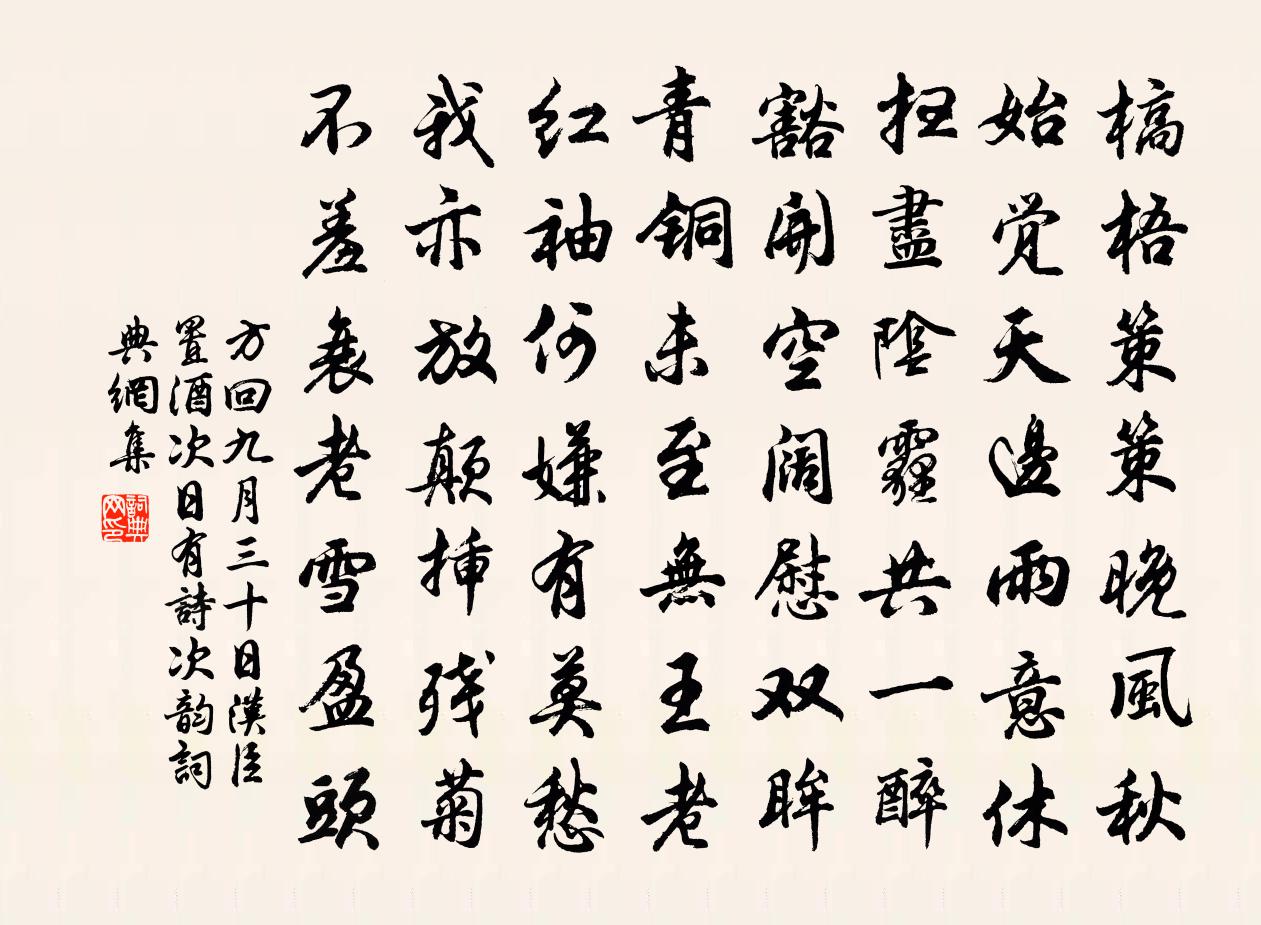 槁梧策策晚風秋
始觉天邊雨意休
扫盡陰霾共一醉
豁開空阔慰双眸
青铜未至無王老
红袖何嫌有莫愁
我亦放颠挿残菊
不羞衰老雪盈頭
方回九月三十日漢臣
置酒次日有詩次韵詞
典網集
詞典網印